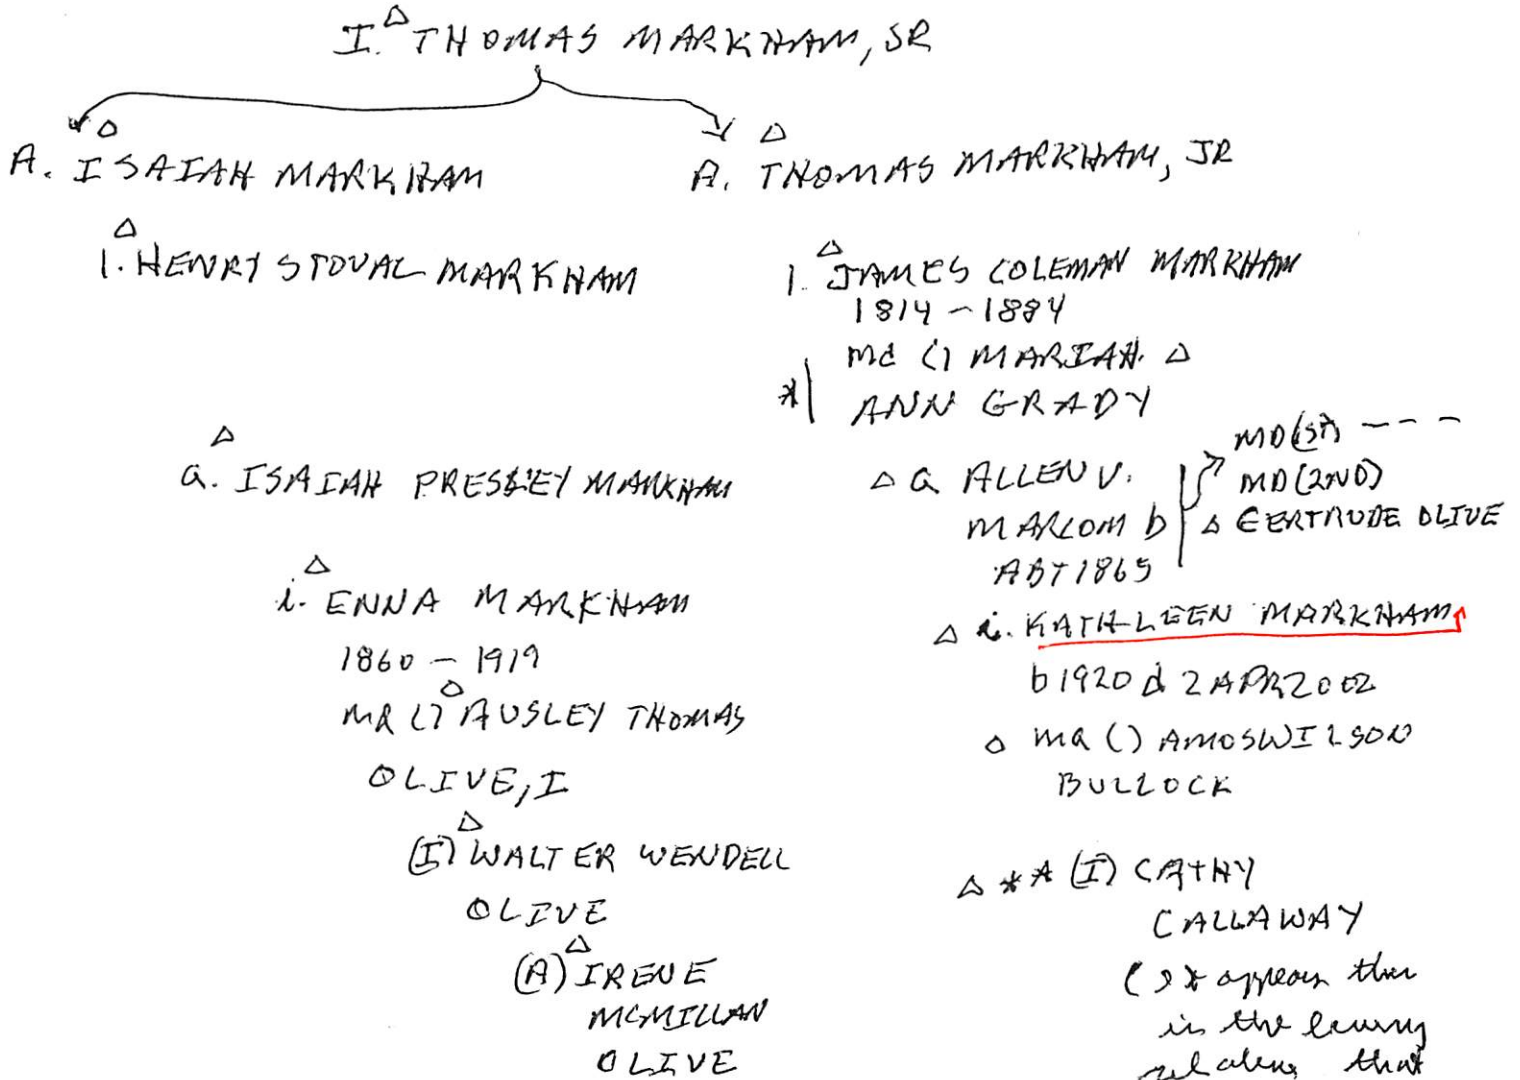 I. THOMAS MARKHAM, SR
A. ISAIAH MARKHAM
1. HENRY STOVAL MARKHAM
a. ISAIAH PRESLEY MARKHAM
i. ENNA MARKHAM
1860 - 1919
MR () AUSLEY THOMAS
OLIVE, I
(I) WALTER WENDELL
OLIVE
(A) IRENE
MCMILLAN
OLIVE
A. THOMAS MARKHAM, JR
1. JAMES COLEMAN MARKHAM
1814 - 1884
md () MARIAH
* ANN GRADY
a ALLEN V.
MARCOM b
ABT 1865
MD (1ST) - - -
MD (2ND)
GERTRUDE OLIVE
i. KATHLEEN MARKHAM
b 1920 d 2 APR 2002
MR () AMOS WILSON
BULLOCK
** (I) CATHY
CALLAWAY
( It appears
in the
that